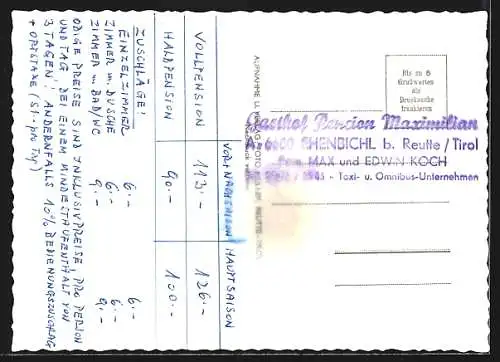 VOR- NACHSAISON HAUPTSAISON
VOLLPENSION 113.- 126.-
HALBPENSION 90.- 100.-
ZUSCHLÄGE:
EINZELZIMMER 6.- 6.-
ZIMMER m. DUSCHE 6.- 6.-
ZIMMER m. BAD/WC 9.- 9.-
OBIGE PREISE SIND INKLUSIVPREISE, PRO PERSON
UND TAG, BEI EINEM MINDESTAUFENTHALT VON
3 TAGEN! ANDERNFALLS 10% BEDIENUNGSZUSCHLAG
+ ORTSTAXE (S 1.- pro Tag)
AUFNAHME U. VERLAG FOTO REUTTE, TIROL
Bis zu 5
Grußworten
als
Drucksache
frankieren
Gasthof Pension Maximilian
A-6600 EHENBICHL b. Reutte/Tirol
Fam. MAX und EDWIN KOCH
Taxi- u. Omnibus-Unternehmen